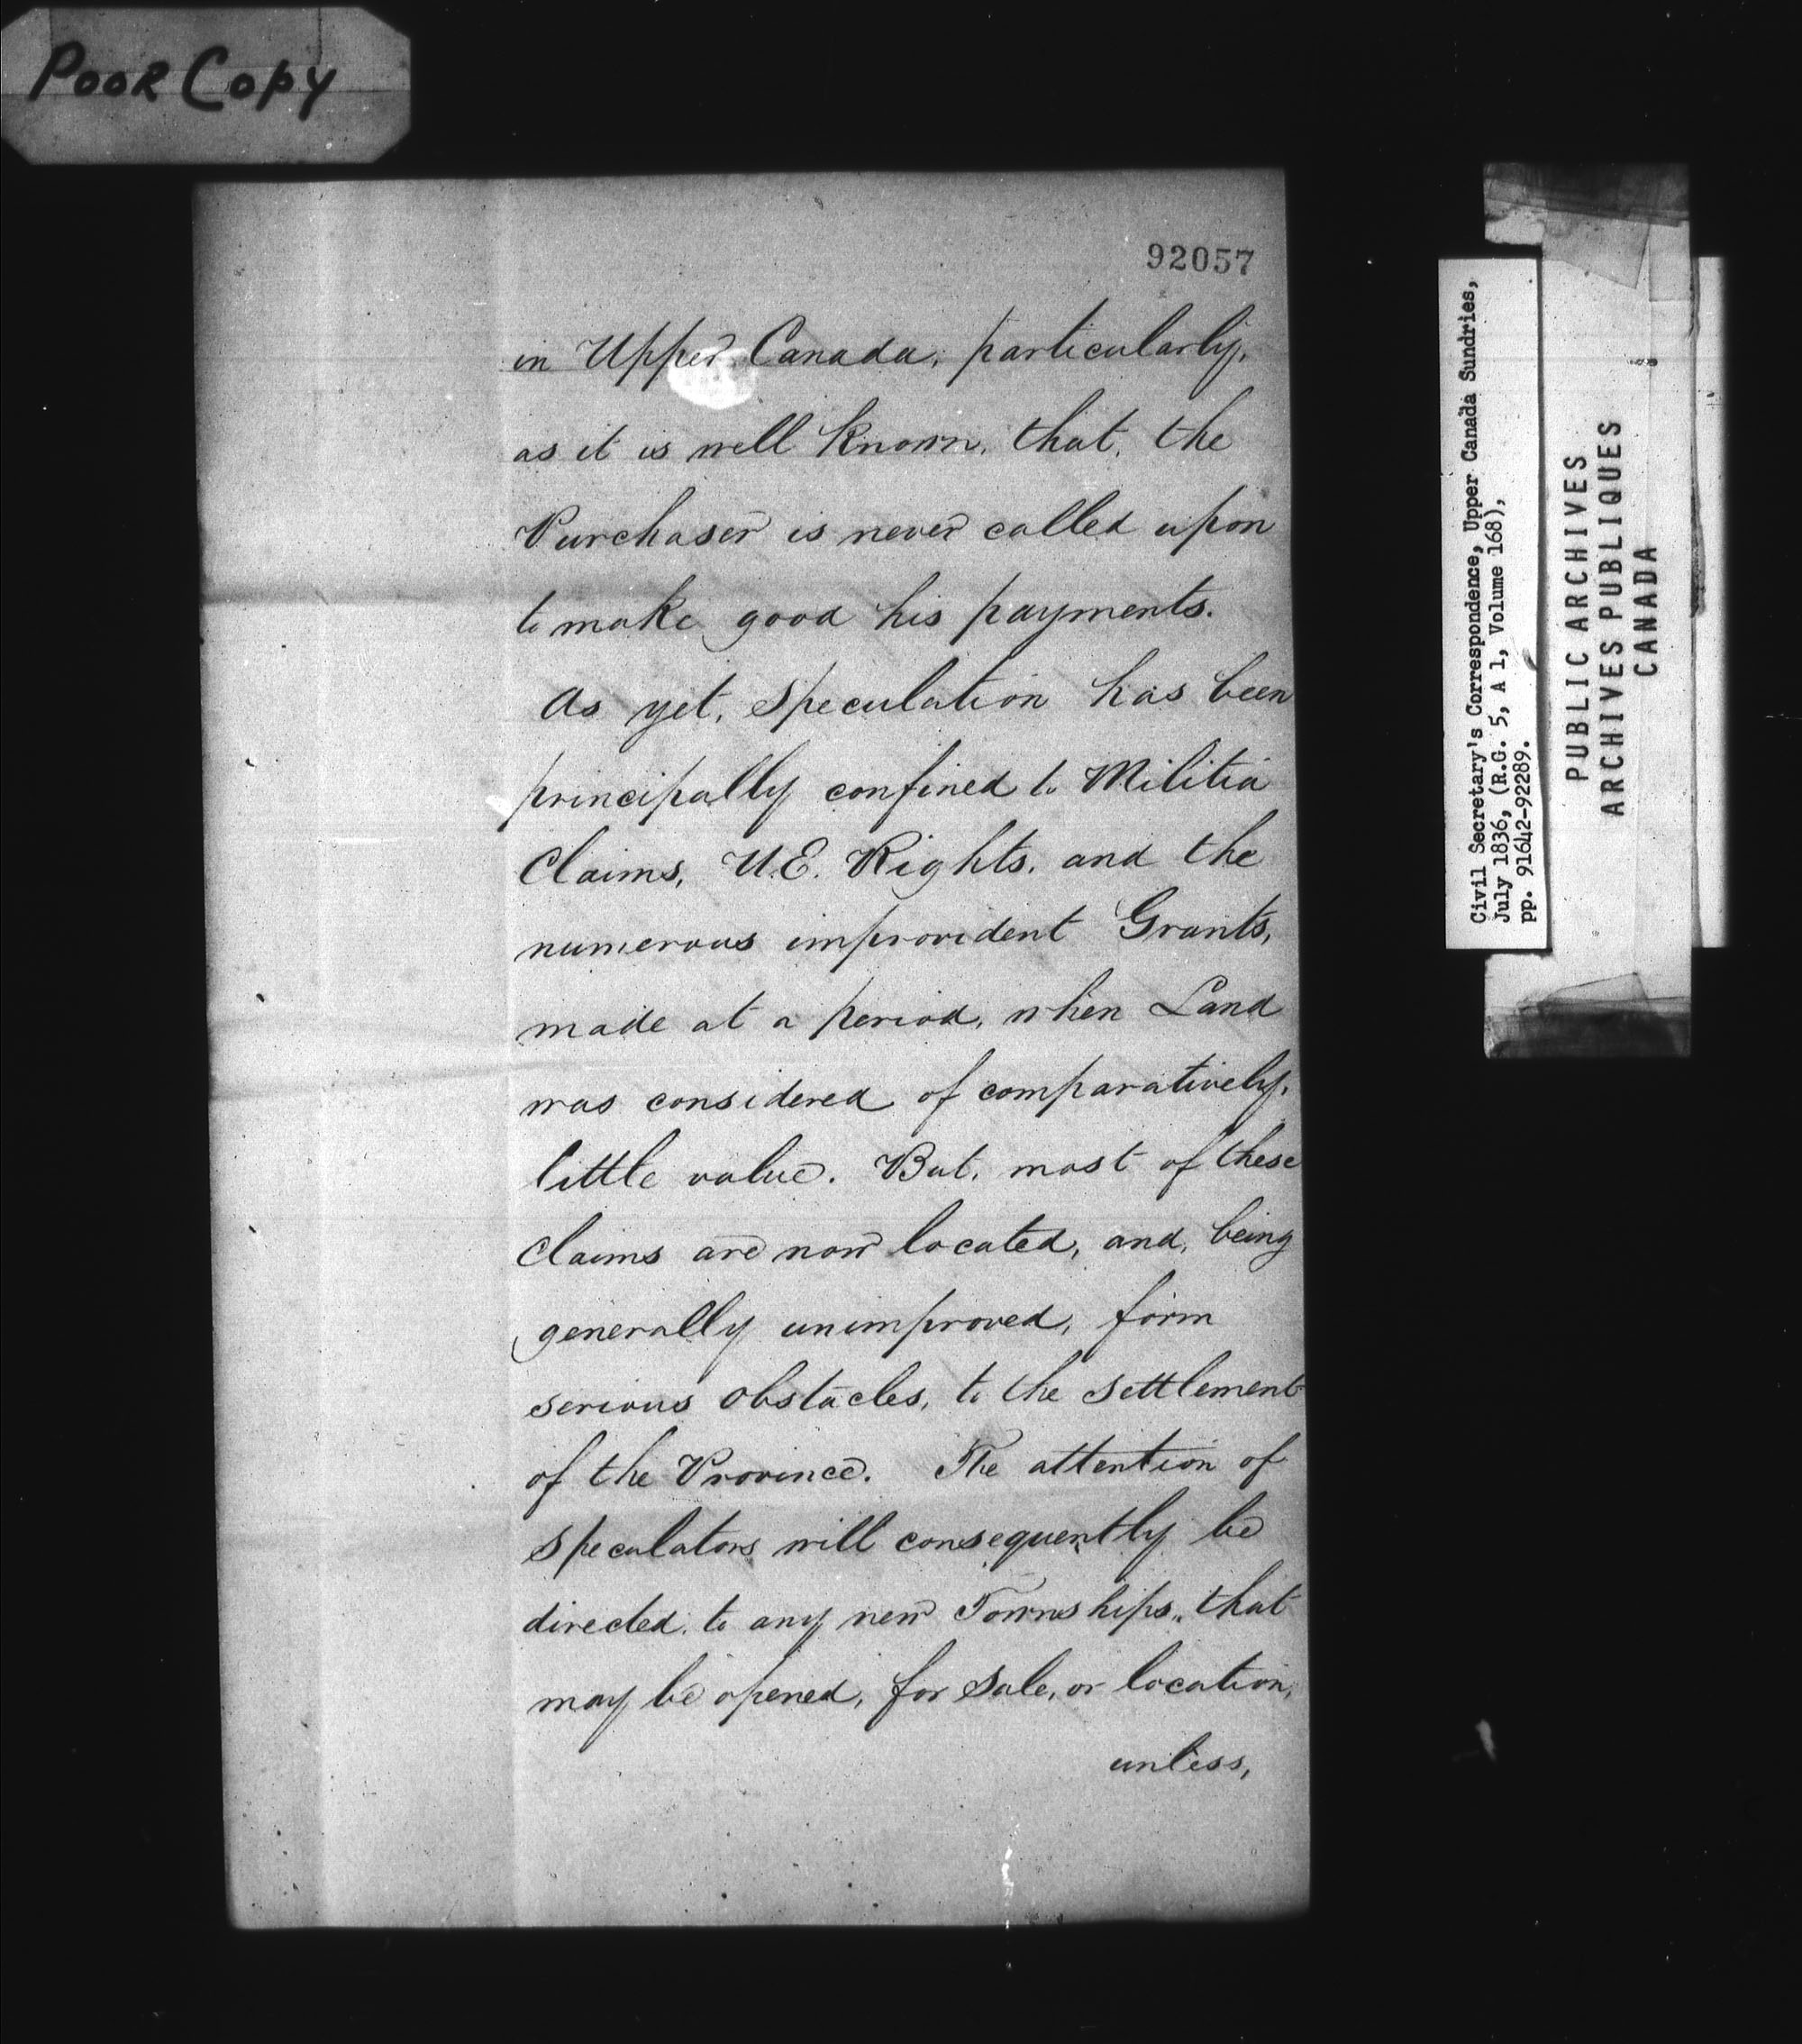 Poor Copy
92057
in Upper Canada, particularly,
as it is well known, that, the
Purchaser is never called upon
to make good his payments.
As yet, Speculation has been
principally confined to Militia
Claims, U.E. Rights, and the
numerous improvident Grants,
made at a period, when Land
was considered of comparatively,
little value. But, most of these
Claims are now located, and, being
generally unimproved, form
serious obstacles, to the settlement
of the Province. The attention of
Speculators will consequently be
directed, to any new Townships, that
may be opened, for Sale, or location,
unless,
Civil Secretary's Correspondence, Upper Canada Sundries,
July 1836, (R.G. 5, A 1, Volume 168),
pp. 91642-92289.
PUBLIC ARCHIVES
ARCHIVES PUBLIQUES
CANADA